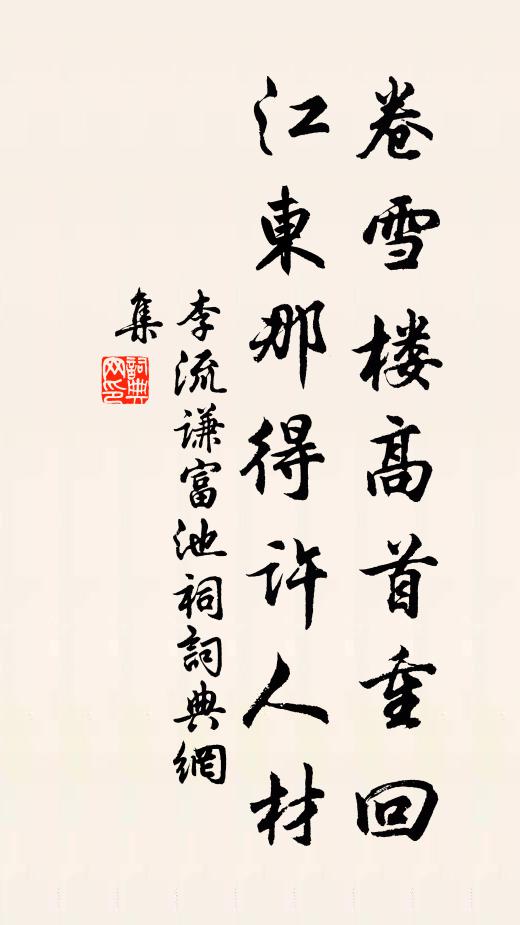 卷雪楼高首重回
江東那得许人材
李流谦富池祠詞典網
集
詞典
网印